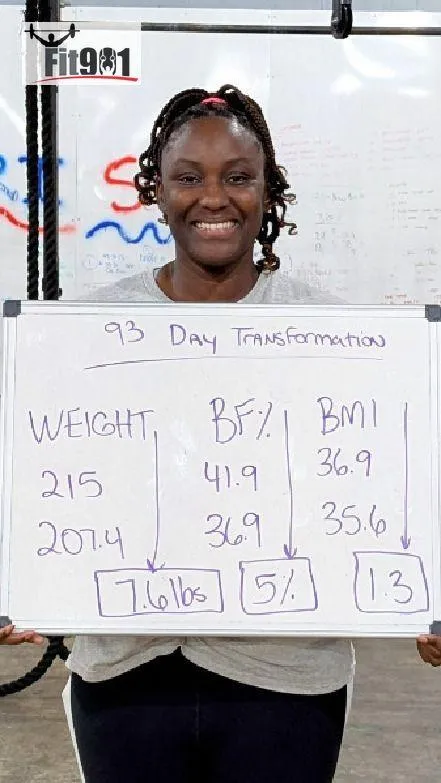 Fit901
93 Day Transformation
WEIGHT BF% BMI
215 41.9 36.9
207.4 36.9 35.6
7.6 lbs 5% 1.3